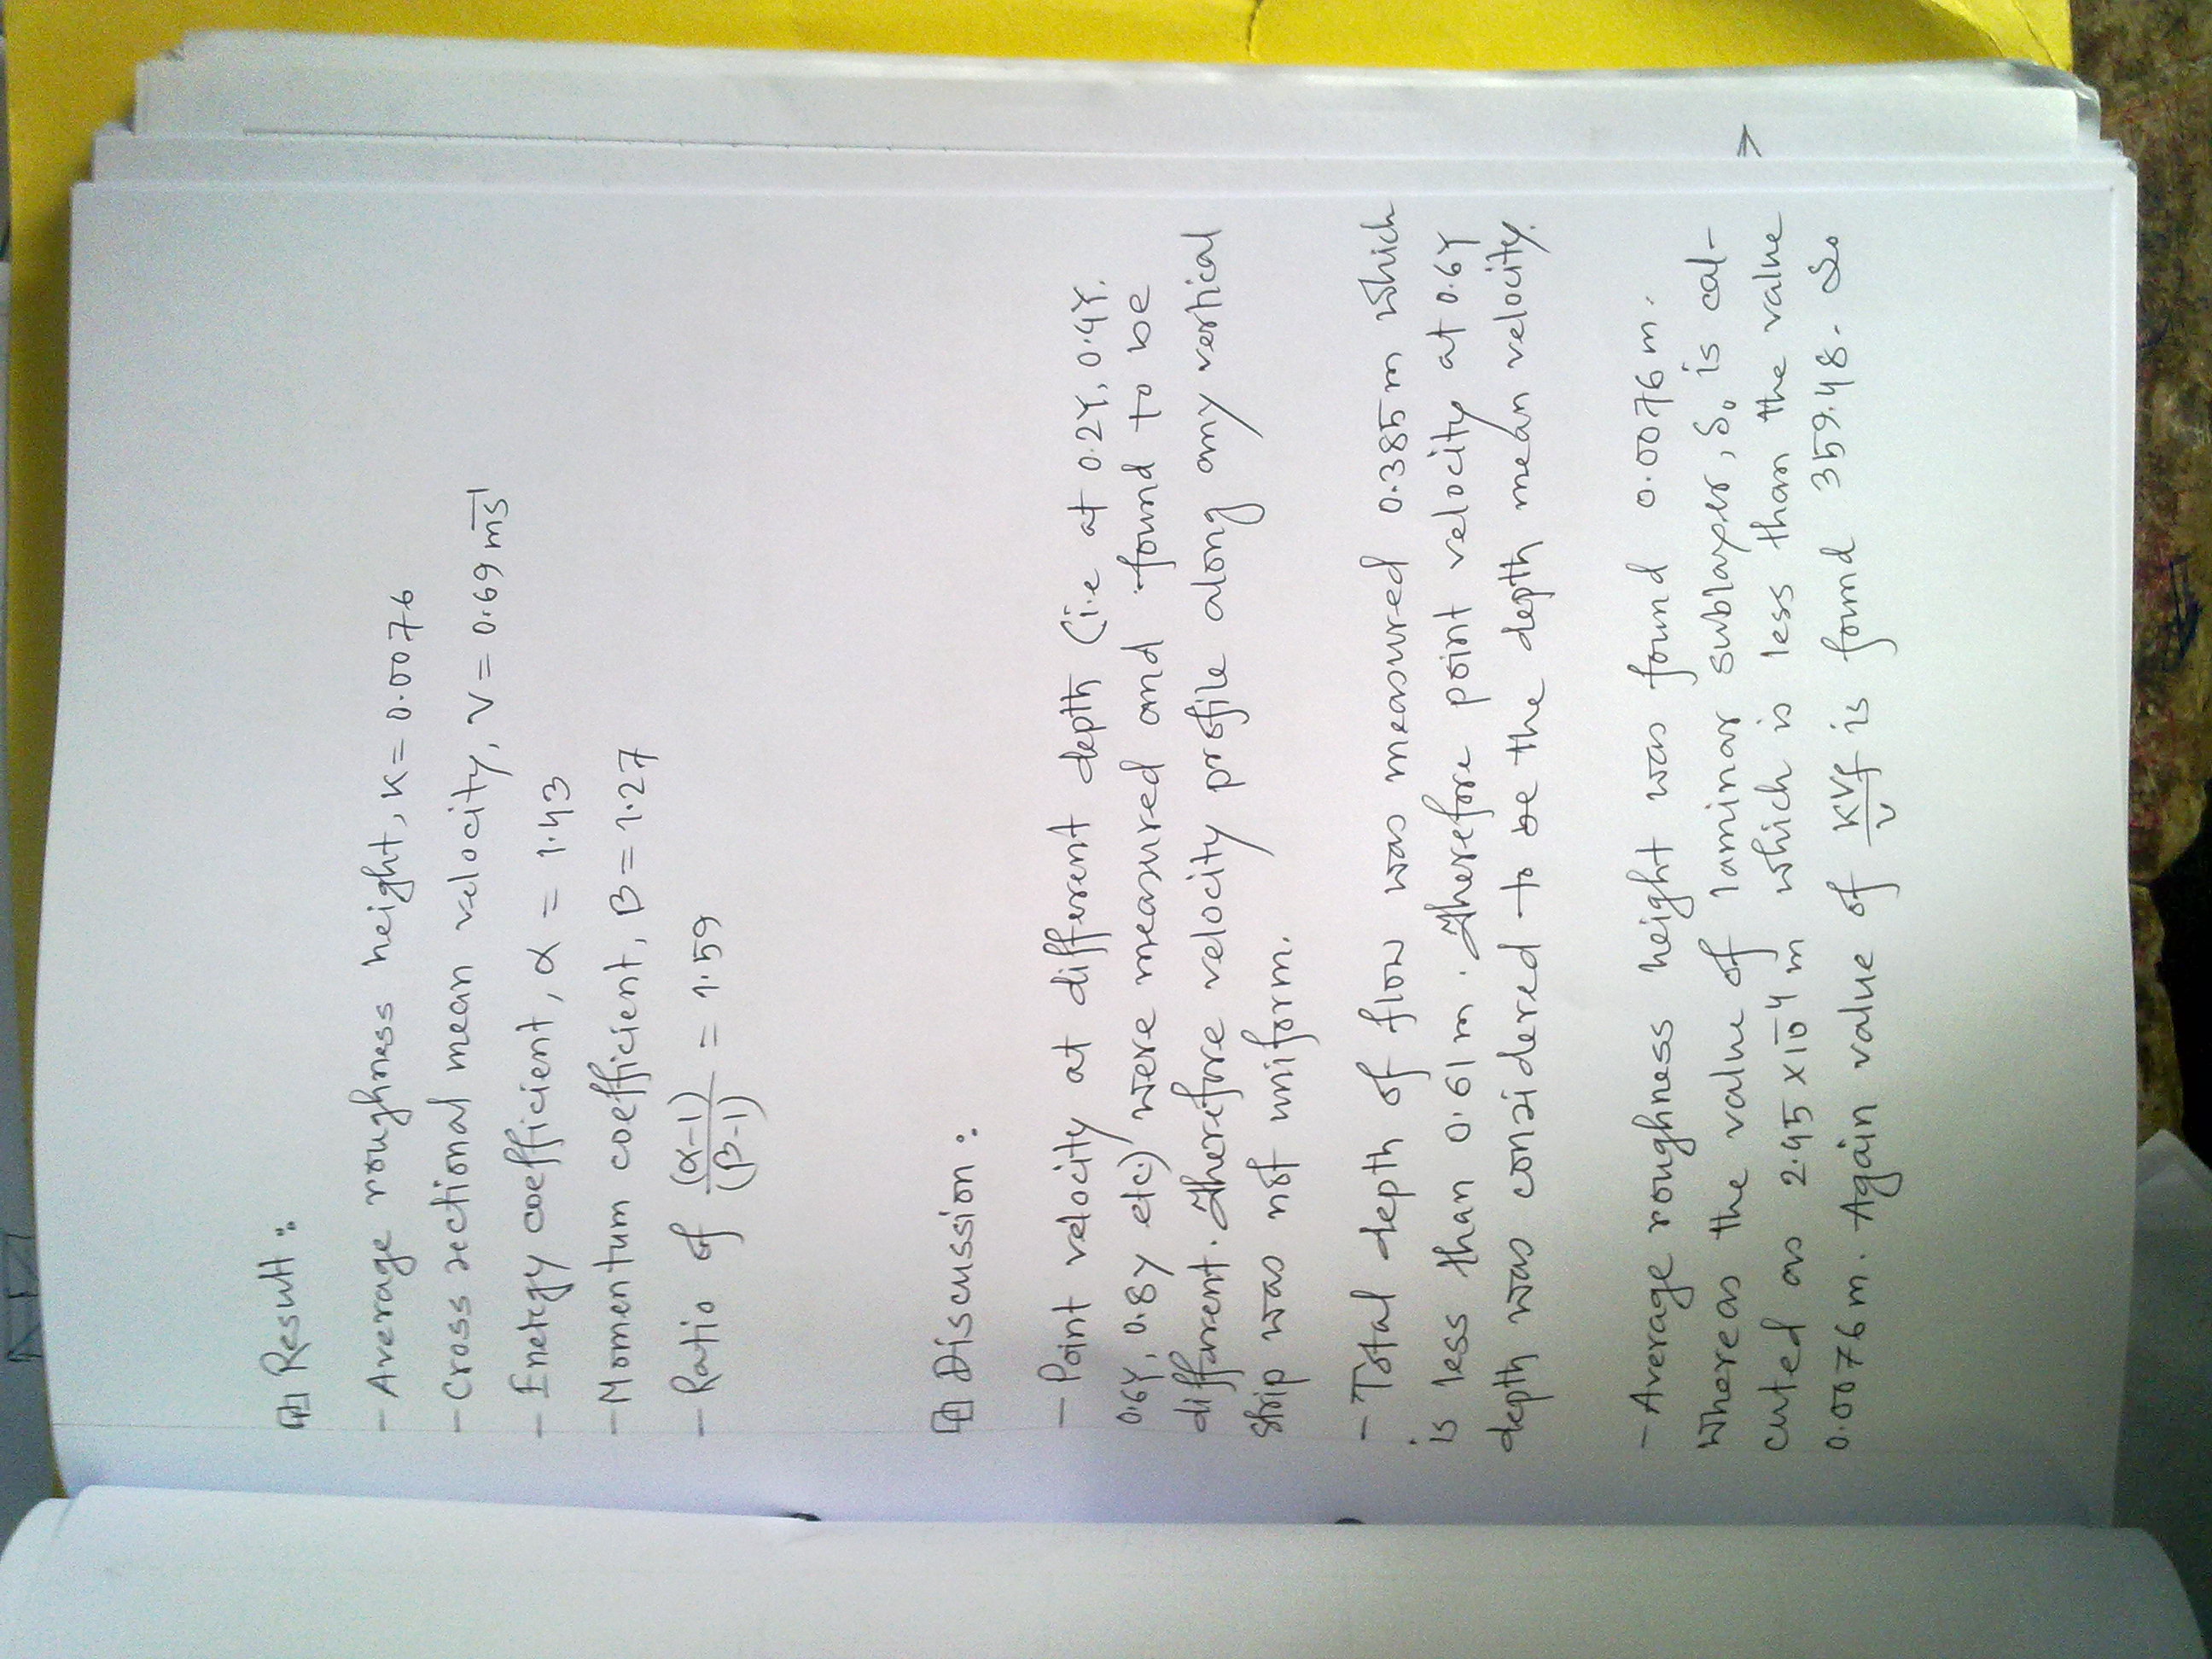 Result :
- Average roughness height, K = 0.0076
- Cross sectional mean velocity, V = 0.69 ms⁻¹
- Energy coefficient, α = 1.43
- Momentum coefficient, β = 1.27
- Ratio of (α-1)/(β-1) = 1.59
Discussion :
- Point velocity at different depth (i.e at 0.2Y, 0.4Y,
0.6Y, 0.8Y etc.) were measured and found to be
different. Therefore velocity profile along any vertical
strip was not uniform.
- Total depth of flow was measured 0.385m which
is less than 0.61m. Therefore point velocity at 0.6Y
depth was considered to be the depth mean velocity.
- Average roughness height was found 0.0076m.
Where as the value of laminar sublayer, δ₀ is cal-
cuted as 2.45 x 10⁻⁴ m which is less than the value
0.0076m. Again value of KVf/ν is found 359.48. So
→